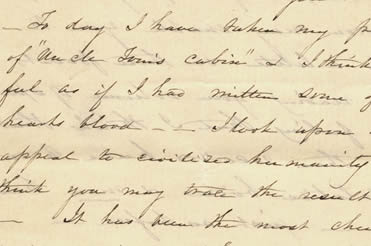 — To day I have taken my p
of "Uncle Tom's cabin" & I think
ful as if I had written some of
hearts blood — — I look upon
appeal to civilized humanity
think you may trace the result
— It has been the most che